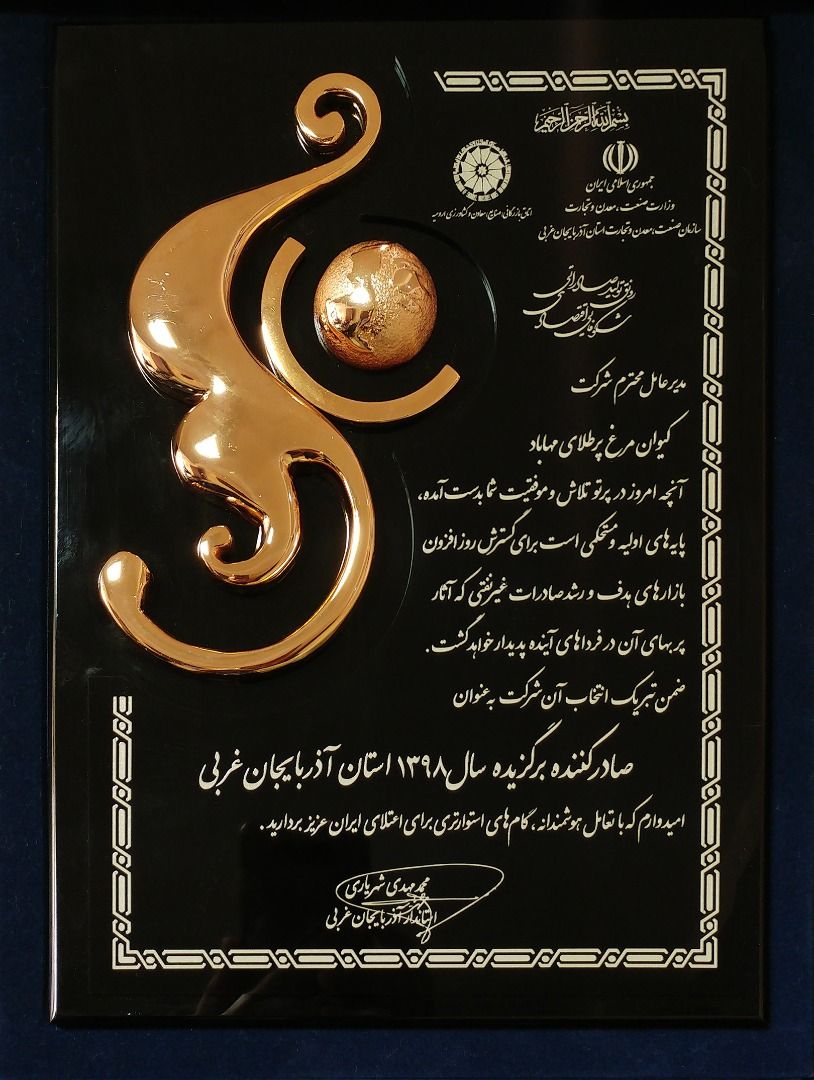 بسم الله الرحمن الرحیم
جمهوری اسلامی ایران
وزارت صنعت، معدن و تجارت
سازمان صنعت، معدن و تجارت استان آذربایجان غربی
اتاق بازرگانی، صنایع، معادن و کشاورزی ارومیه
رونق تولید صادراتی
شکوفایی اقتصاد ملی
مدیر عامل محترم شرکت
کیوان مرغ پر طلای مهاباد
آنچه امروز در پرتو تلاش و موفقیت شما بدست آمده،
پایه های اولیه و مستحکمی است برای گسترش روز افزون
بازارهای هدف و رشد صادرات غیرنفتی که آثار
پر بهای آن در فرداهای آینده پدیدار خواهد گشت.
ضمن تبریک انتخاب آن شرکت به عنوان
صادرکننده برگزیده سال ۱۳۹۸ استان آذربایجان غربی
امیدوارم که با تعامل هوشمندانه، گام های استوارتری برای اعتلای ایران عزیز بردارید.
محمد مهدی شهریاری
استاندار آذربایجان غربی